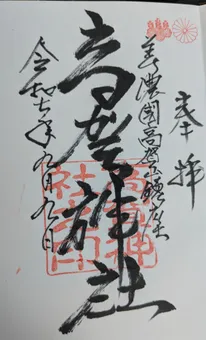 奉拝
美濃國高賀山鎮座
高賀神社
令和七年九月九日
高賀神
社之印